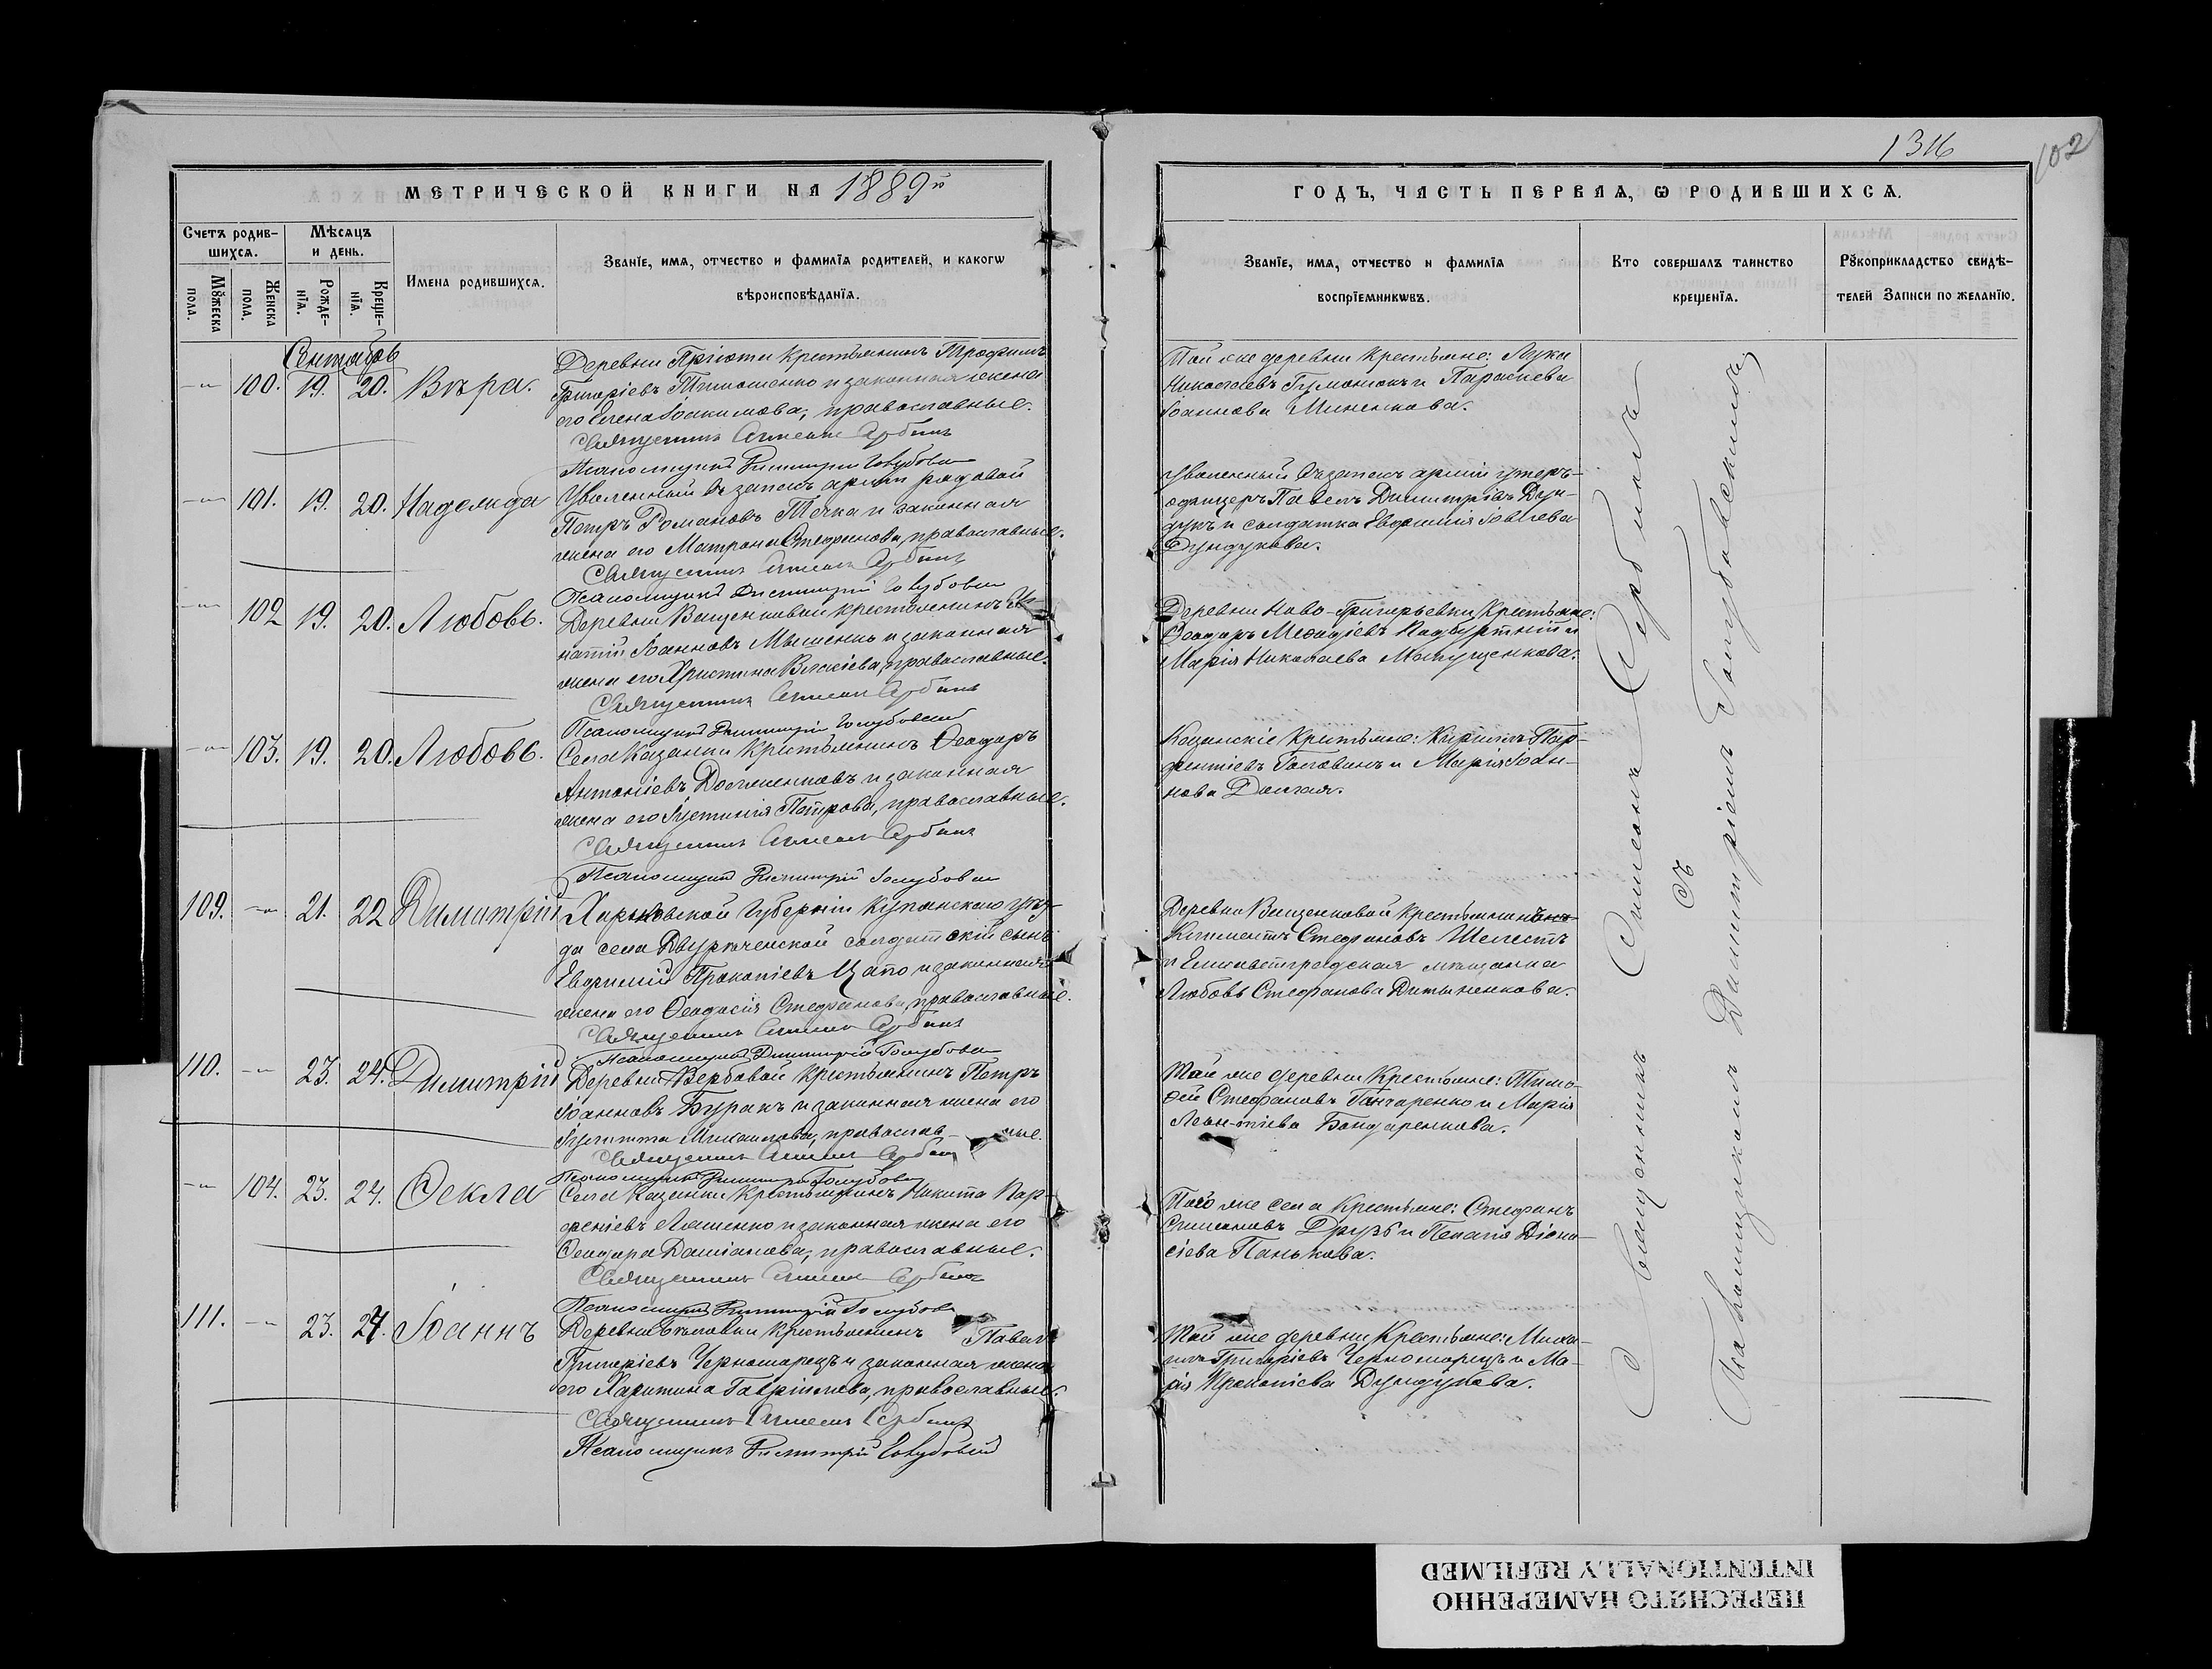 1316
102
МЕТРИЧЕСКОЙ КНИГИ НА 1889й
ГОДЪ, ЧАСТЬ ПЕРВАЯ, Ѡ РОДИВШИХСѦ.
Счетъ родив-
шихсѧ.
Мꙋжеска
пола.
Женска
пола.
Мѣсѧцъ
и день.
Рожде-
нїѧ.
Креще-
нїѧ.
Имена родившихсѧ.
Званїе, имѧ, отчество и фамилїѧ родителей, и какогѡ
вѣроисповѣданїѧ.
Званїе, имѧ, отчество и фамилїѧ
воспрїемникѡвъ.
Кто совершалъ таинство
крещенїѧ.
Рꙋкоприкладство свидѣ-
телей записи по желанїю.
Сентябрь
100. 19. 20. Вѣра.
Деревни Пріюти крестьянинъ Трофимъ
Григоріевъ Тимошенко и законная жена
его Елена Іоакимова, православные.
Священникъ Симеонъ Сербинъ
Псаломщикъ Димитрій Голубовскій
Той же деревни крестьяне: Лука
Николаевъ и Параскева
Іоаннова Миненкова.
101. 19. 20. Надежда
Уволенный въ запасъ арміи рядовой
Петръ Романовъ Течка и законная
жена его Матрона Стефанова, православные.
Священникъ Симеонъ Сербинъ
Псаломщикъ Димитрій Голубовскій
Уволенный въ запасъ арміи унтеръ-
офицеръ Павелъ Димитріевъ Дун-
дукъ и солдатка Евфимія Іовлева
Дундукова.
102 19. 20. Любовь.
Деревни Ващенковой крестьянинъ Иг-
натій Іоанновъ и законная
жена его Христина Власіева, православные.
Священникъ Симеонъ Сербинъ
Псаломщикъ Димитрій Голубовскій
Деревни Ново-Григорьевки крестьяне:
Ѳеодоръ Меѳодіевъ и
Марія Николаева
103. 19. 20. Любовь.
Села Казанки крестьянинъ Ѳеодоръ
Антоніевъ Долженковъ и законная
жена его Іустинія Петрова, православные.
Священникъ Симеонъ Сербинъ
Псаломщикъ Димитрій Голубовскій
Казанскіе крестьяне: Кириллъ Пар-
феніевъ Головинъ и Марія Іоан-
нова Долгая.
109. 21. 22 Димитрій
Харьковской губерніи Купянского уѣз-
да села Двурѣченской солдатскій сынъ
Евфимій Прокопіевъ Цапо и законная
жена его Ѳеодосія Стефанова, православные.
Священникъ Симеонъ Сербинъ
Псаломщикъ Димитрій Голубовскій
Деревни Ващенковой крестьянинъ
Климентъ Стефановъ Шелестъ
и Елисаветградская мѣщанка
Любовь Стефанова
110. 23. 24. Димитрій
Деревни Вербовой крестьянинъ Петръ
Іоанновъ Буракъ и законная жена его
Іулитта Михаилова, православ- ные.
Священникъ Симеонъ Сербинъ
Псаломщикъ Димитрій Голубовскій
Той же деревни крестьяне: Тимо-
ѳей Стефановъ Гончаренко и Марія
Леон-тіева Бондаренкова.
104. 23. 24. Ѳекла
Села Казанки крестьянинъ Никита Пар-
феніевъ Ляшенко и законная жена его
Ѳеодора Даміанова, православные.
Священникъ Симеонъ Сербинъ
Псаломщикъ Димитрій Голубовскій
Того же села крестьяне: Стефанъ
Симеоновъ Друзь и Пелагія Діони-
сіева Панькова.
111. 23. 24. Іоаннъ
Деревни Бѣловки крестьянинъ Павелъ
Григоріевъ Черноморецъ и законная жена
его Харитина Гавріилова, православные.
Священникъ Симеонъ Сербинъ
Псаломщикъ Димитрій Голубовскій
Той же деревни крестьяне: Миха-
илъ Григоріевъ Черноморецъ и Ма-
рія Прокопіева Дундукова.
Священникъ Симеонъ Сербинъ
съ
Псаломщикомъ Димитріемъ Голубовскимъ
ПЕРЕСНЯТО НАМЕРЕННО
INTENTIONALLY REFILMED